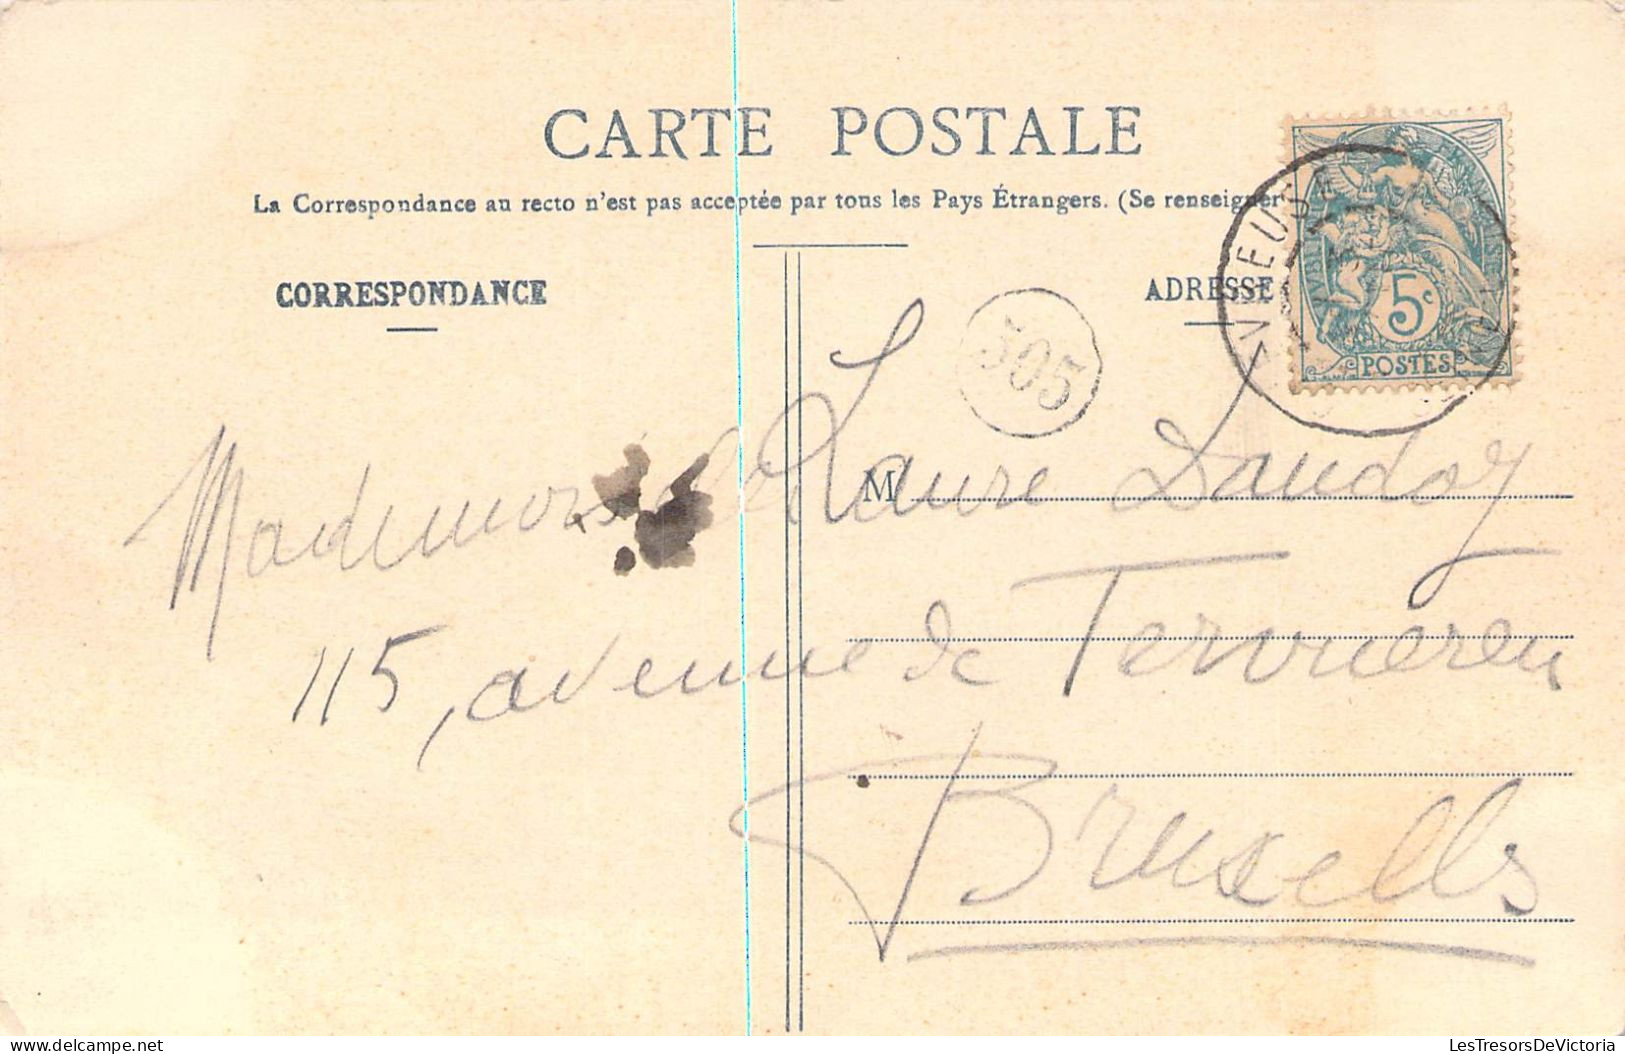 CARTE POSTALE
La Correspondance au recto n'est pas acceptée par tous les Pays Étrangers. (Se renseigner
CORRESPONDANCE
ADRESSE
505
5c
POSTES
M
Mademoiselle Laure Dandoy
115, avenue de Tervueren
Bruxelles
LesTresorsDeVictoria
delcampe.net